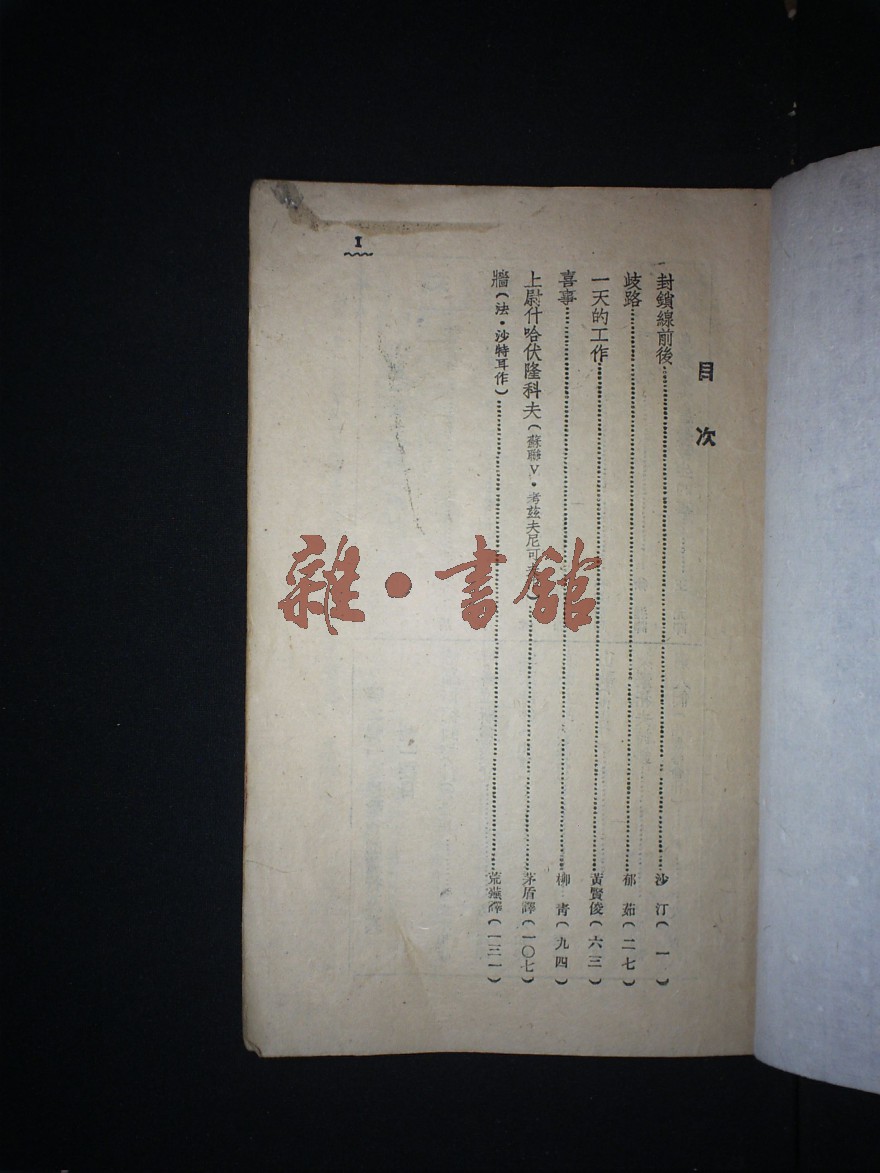 目次
封鎖線前後……沙汀(一)
歧路……郁茹(二七)
一天的工作……黃賢俊(六三)
喜事……柳青(九四)
上尉什哈伏隆科夫(蘇聯V·考茲夫尼可夫)……茅盾譯(一〇七)
牆(法·沙特耳作)……荒蕪譯(一三一)
I
雜·書館